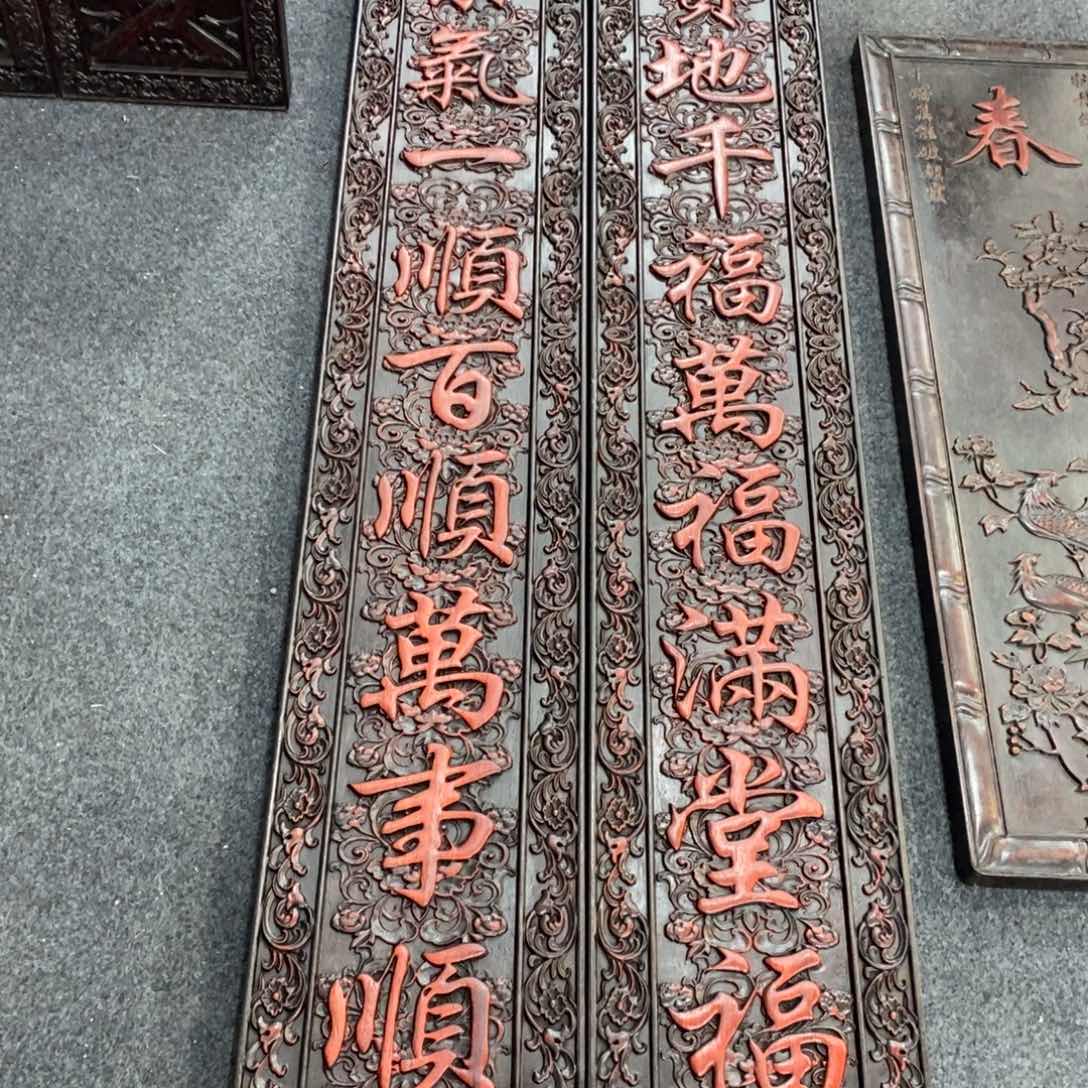 春
地千福萬福滿堂福
氣一順百順萬事順